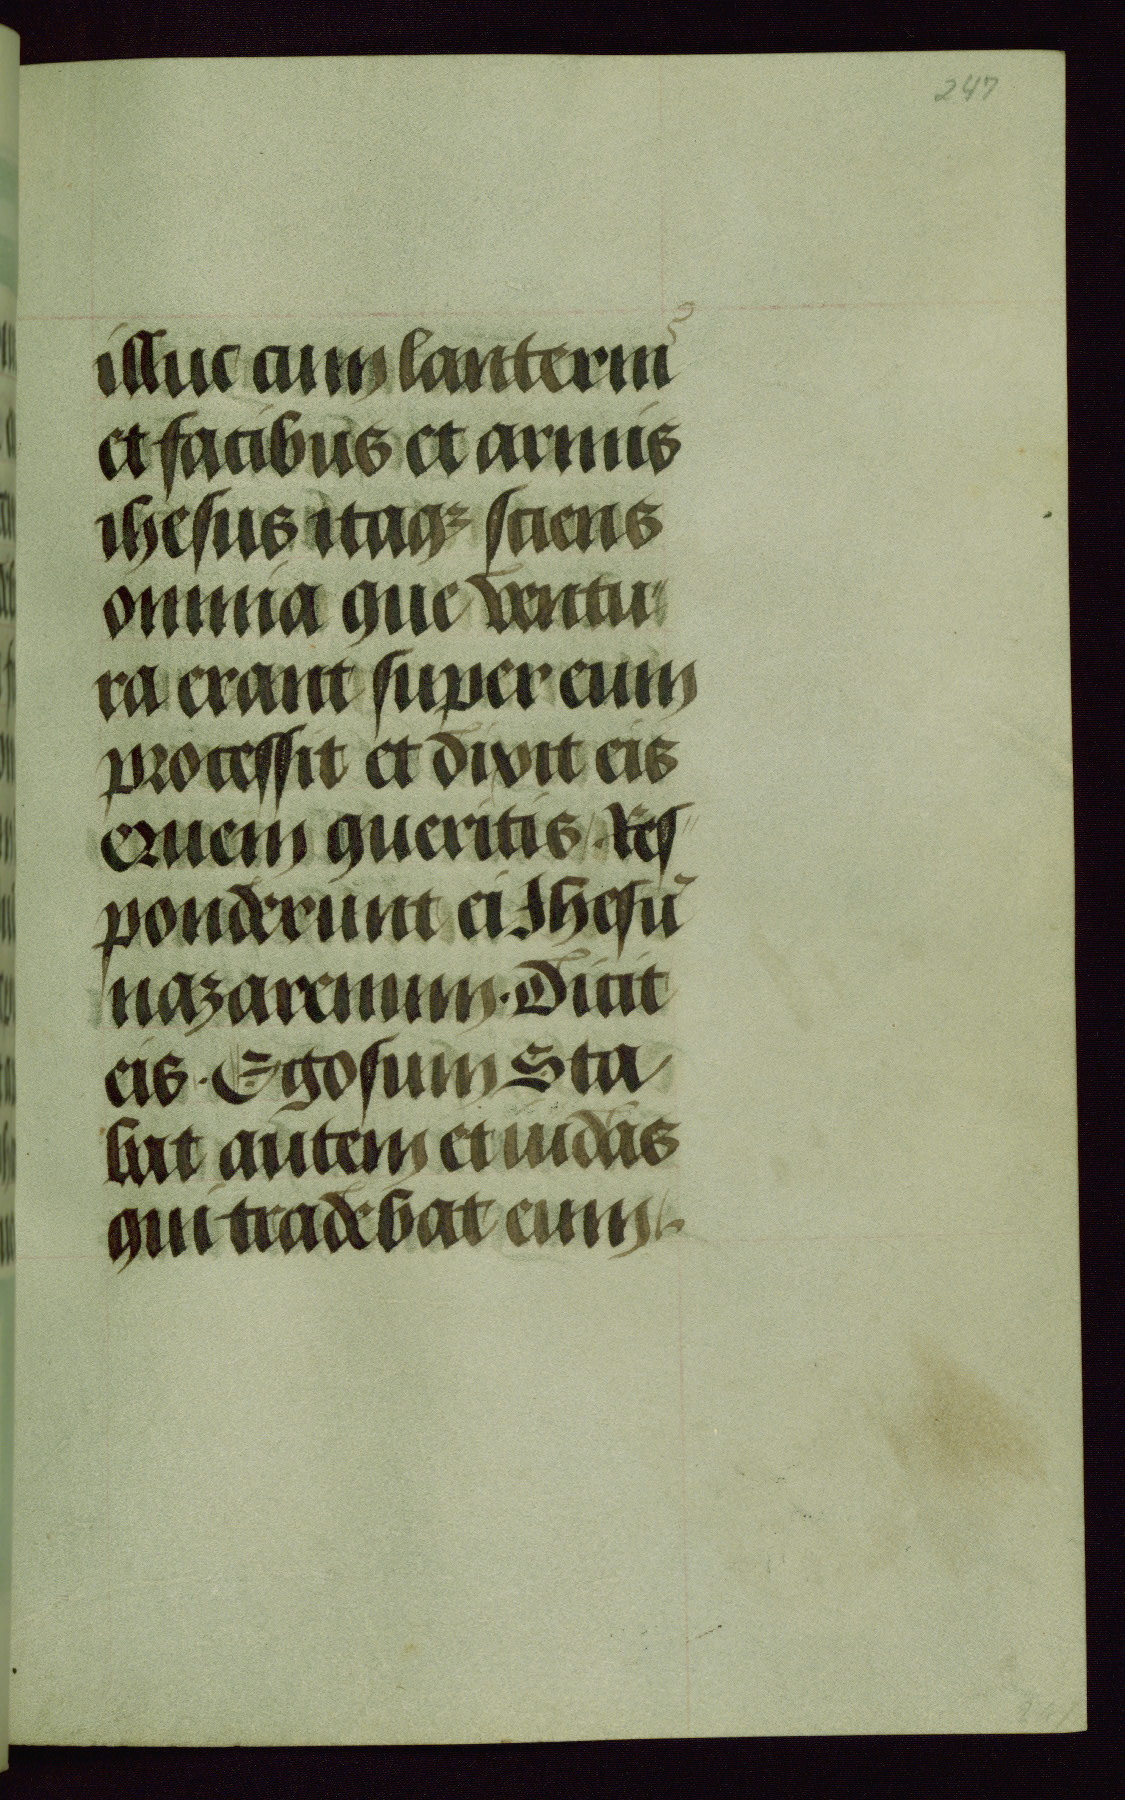 247
illuc cum lanternis
et facibus et armis
ihesus itaqꝫ sciens
omnia que ventu
ra erant super eum
processit et dixit eis
Quem queritis. Res
ponderunt ei Ihesū
nazarenum. Dicit
eis. Ego sum Sta
bat autem et iudas
qui tradebat eum.